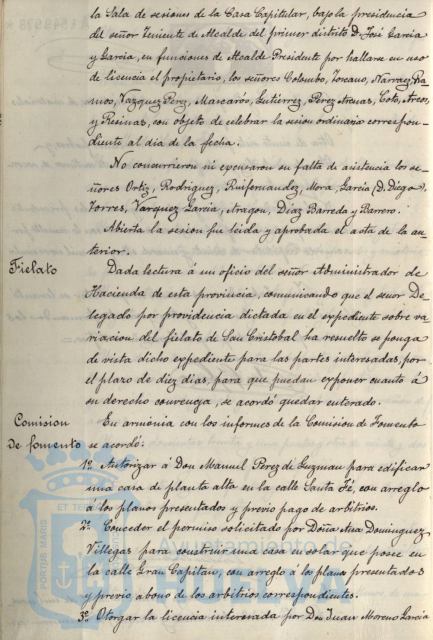 la Sala de sesiones de la Casa Capitular, bajo la presidencia
del señor Teniente de Alcalde del primer distrito D. José García
y García, en funciones de Alcalde Presidente por hallarse en uso
de licencia el propietario, los señores Colombo, Toscano, Narvaez, Ra-
mos, Vazquez Perez, Mascarós, Gutiérrez, Perez Arenas, Coto, Arcos
y Resinas, con objeto de celebrar la sesion ordinaria correspon-
diente al dia de la fecha.
No concurrieron ni escusaron su falta de asistencia los se-
ñores Ortiz, Rodriguez, Ruifernandez, Mora, Garcia (D. Diego),
Torres, Vazquez Garcia, Aragon, Diaz Barreda y Barero.
Abierta la sesion fue leida y aprobada el acta de la an-
terior.
Fielato
Dada lectura á un oficio del señor Administrador de
Hacienda de esta provincia, comunicando que el señor De-
legado por providencia dictada en el expediente sobre va-
riacion del fielato de San Cristobal ha resuelto se ponga
de vista dicho expediente para las partes interesadas, por
el plazo de diez dias, para que puedan exponer cuanto á
su derecho convenga, se acordó quedar enterado.
Comision
de fomento
En armonia con los informes de la Comision de Fomento
se acordó:
1º Autorizar á Don Manuel Perez de Guzman para edificar
una casa de planta alta en la calle Santa Fé, con arreglo
á los planos presentados y previo pago de arbitrios.
2º Conceder el permiso solicitado por Doña Ana Dominguez
Villegas para construir una casa en solar que posee en
la calle Gran Capitan, con arreglo á los planos presentados
y previo abono de los arbitrios correspondientes.
3º Otorgar la licencia interesada por Don Juan Moreno Garcia
PORTUS MARIS ET TERRAE
Ayuntamiento de